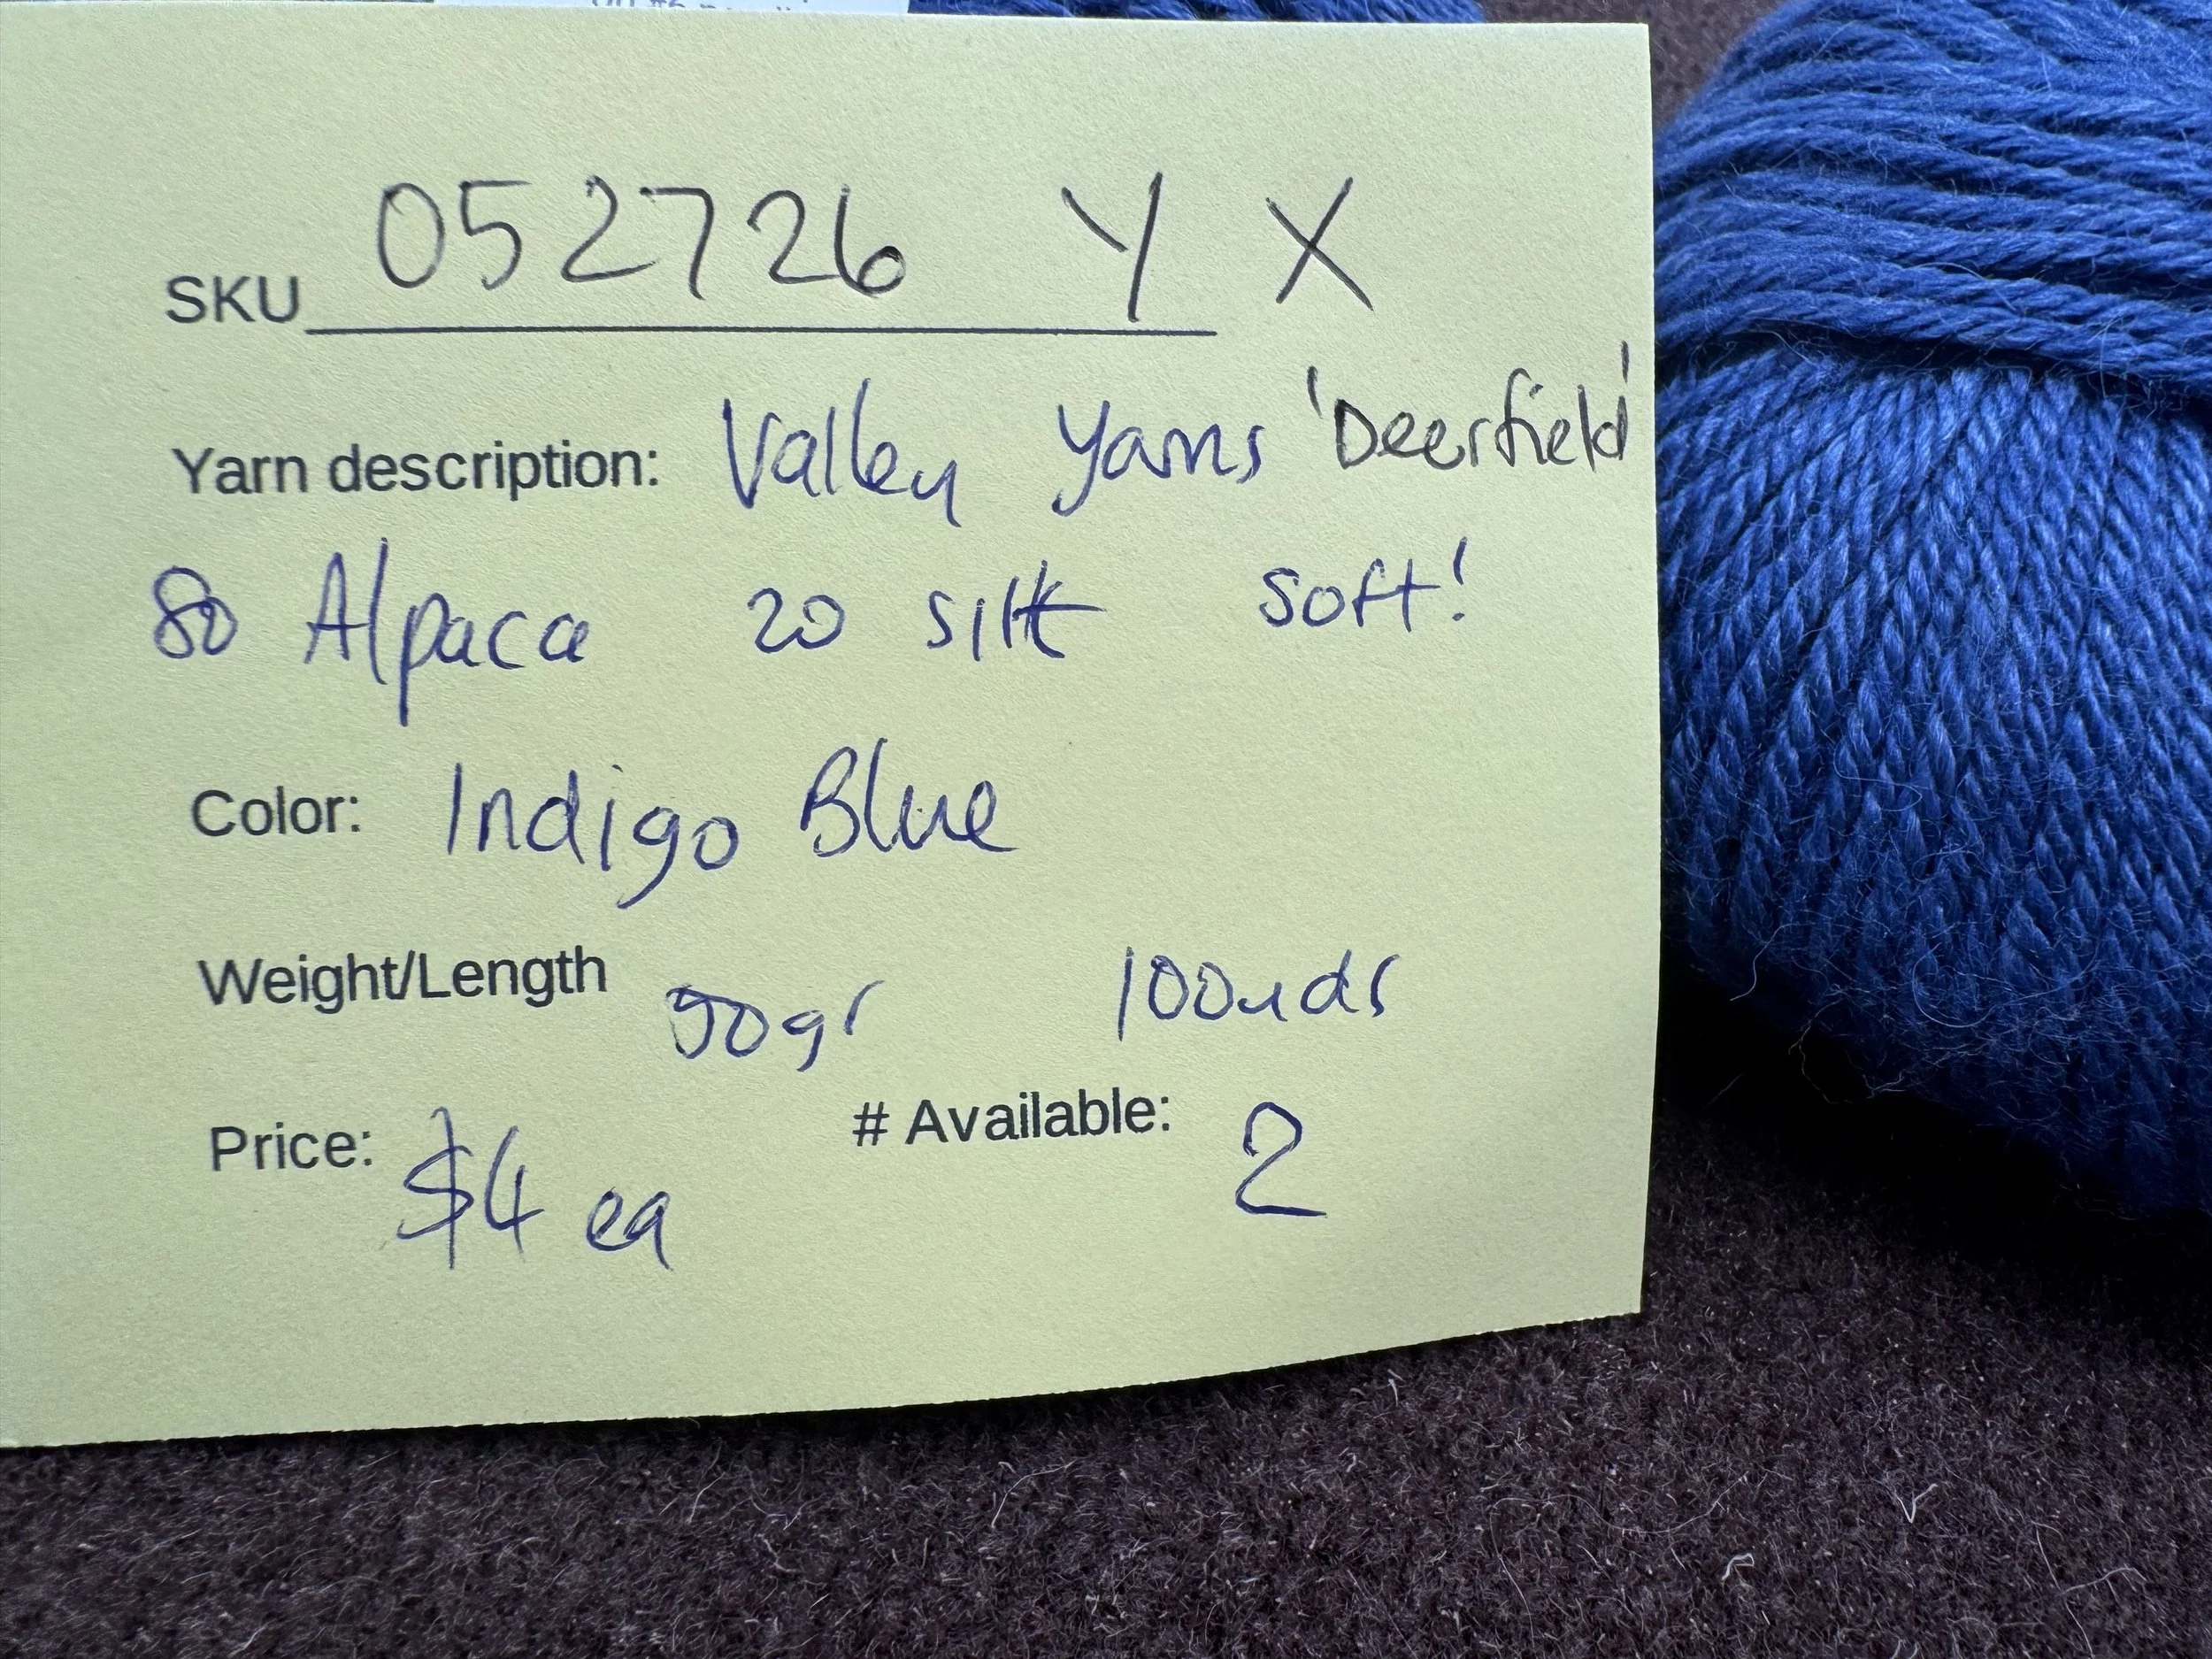 SKU 052726 Y X
Yarn description: Valley Yarns 'Deerfield'
80 Alpaca 20 silk soft!
Color: Indigo Blue
Weight/Length 50gr 100yds
Price: $4 ea # Available: 2